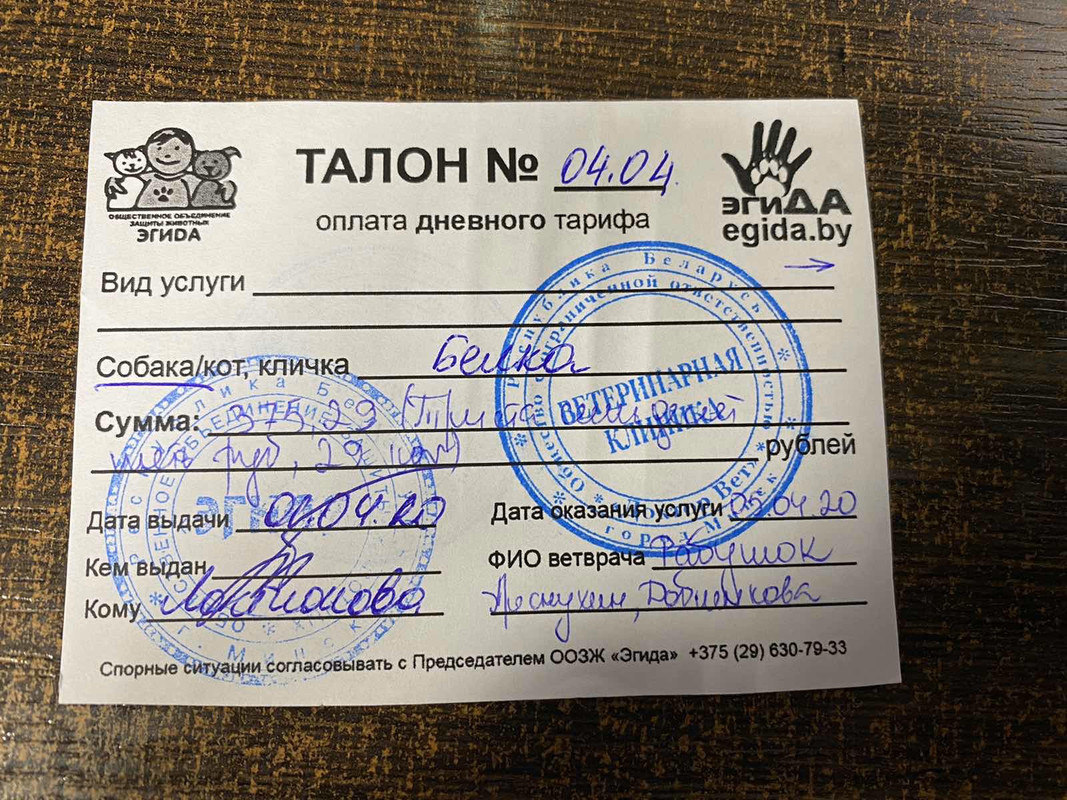 ТАЛОН № 04.04.
оплата дневного тарифа
ОБЩЕСТВЕННОЕ ОБЪЕДИНЕНИЕ
ЗАЩИТЫ ЖИВОТНЫХ
ЭГИДА
эгиДА
egida.by
Вид услуги
Собака/кот, кличка Белка
Сумма: 375,29 (Триста семьдесят
пять руб, 29 коп) рублей
Дата выдачи 04.04.20
Дата оказания услуги 05.04.20
Кем выдан
ФИО ветврача Рабушок
Кому
Спорные ситуации согласовывать с Председателем ООЗЖ «Эгида» +375 (29) 630-79-33
Республика Беларусь
Общество с ограниченной ответственностью
ВЕТЕРИНАРНАЯ
КЛИНИКА
город Минск
г. Минск